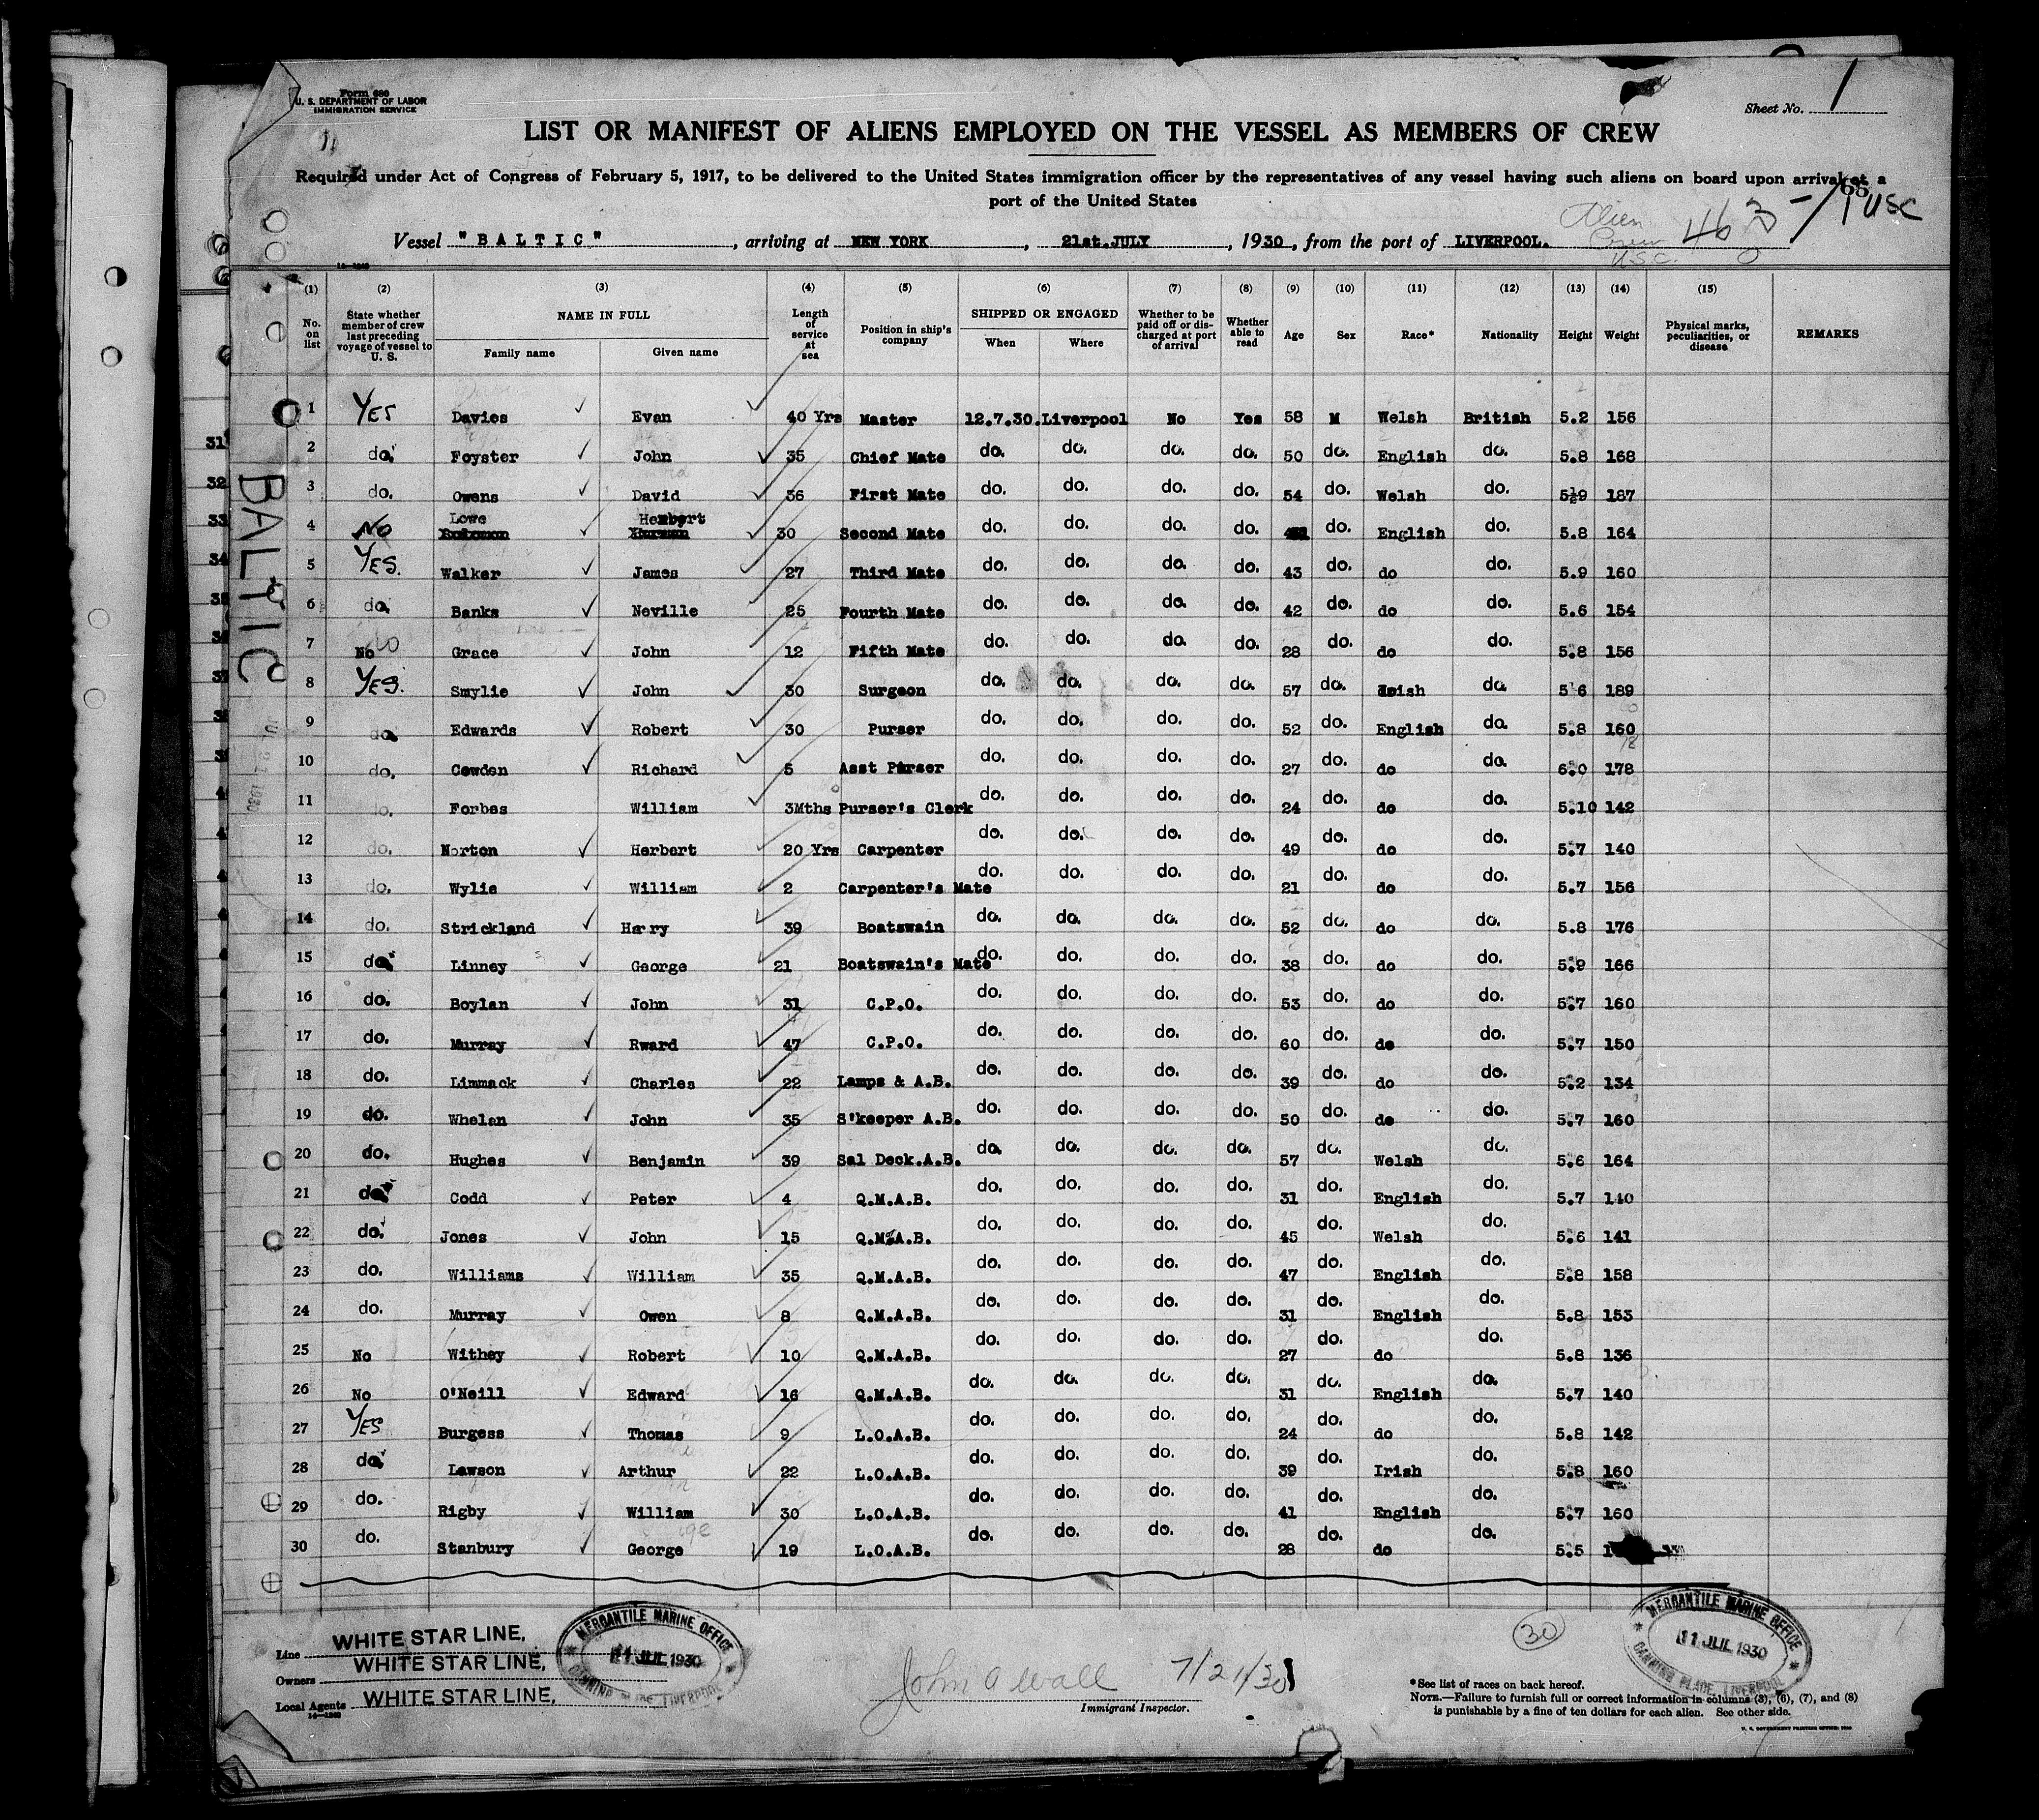 Form 680
U. S. DEPARTMENT OF LABOR
IMMIGRATION SERVICE
Sheet No. 1
LIST OR MANIFEST OF ALIENS EMPLOYED ON THE VESSEL AS MEMBERS OF CREW
Required under Act of Congress of February 5, 1917, to be delivered to the United States immigration officer by the representatives of any vessel having such aliens on board upon arrival at a
port of the United States
Vessel "BALTIC", arriving at NEW YORK, 21st.JULY, 1930, from the port of LIVERPOOL.
Alien Crew 463 - 1 USC
U.S.C. 0
(1) (2) (3) (4) (5) (6) (7) (8) (9) (10) (11) (12) (13) (14) (15)
No. on list | State whether member of crew last preceding voyage of vessel to U. S. | NAME IN FULL Family name Given name | Length of service at sea | Position in ship's company | SHIPPED OR ENGAGED When Where | Whether to be paid off or discharged at port of arrival | Whether able to read | Age | Sex | Race* | Nationality | Height | Weight | Physical marks, peculiarities, or disease | REMARKS
1 YES Davies Evan 40 Yrs Master 12.7.30. Liverpool No Yes 58 M Welsh British 5.2 156
2 do. Foyster John 35 Chief Mate do. do. do. do. 50 do. English do. 5.8 168
3 do. Owens David 36 First Mate do. do. do. do. 54 do. Welsh do. 5½9 187
4 No Lowe Herbert 30 Second Mate do. do. do. do. do. English do. 5.8 164
5 YES. Walker James 27 Third Mate do. do. do. do. 43 do. do do. 5.9 160
6 do. Banks Neville 25 Fourth Mate do. do. do. do. 42 do. do do. 5.6 154
7 No Grace John 12 Fifth Mate do. do. do. do. 28 do. do do. 5.8 156
8 YES. Smylie John 30 Surgeon do. do. do. do. 57 do. Irish do. 5.6 189
9 do. Edwards Robert 30 Purser do. do. do. do. 52 do. English do. 5.8 160
10 do. Cowden Richard 5 Asst Purser do. do. do. do. 27 do. do do. 6.0 178
11 do. Forbes William 3Mths Purser's Clerk do. do. do. do. 24 do. do do. 5.10 142
12 do. Norton Herbert 20 Yrs Carpenter do. do. do. do. 49 do. do do. 5.7 140
13 do. Wylie William 2 Carpenter's Mate do. do. do. do. 21 do. do do. 5.7 156
14 do. Strickland Harry 39 Boatswain do. do. do. do. 52 do. do do. 5.8 176
15 do. Linney George 21 Boatswain's Mate do. do. do. do. 38 do. do do. 5.9 166
16 do. Boylan John 31 C.P.O. do. do. do. do. 53 do. do do. 5.7 160
17 do. Murray Rward 47 C.P.O. do. do. do. do. 60 do. do do. 5.7 150
18 do. Limmack Charles 22 Lamps & A.B. do. do. do. do. 39 do. do do. 5.2 134
19 do. Whelan John 35 S'keeper A.B. do. do. do. do. 50 do. do do. 5.7 160
20 do. Hughes Benjamin 39 Sal Deck.A.B. do. do. do. do. 57 do. Welsh do. 5.6 164
21 do. Codd Peter 4 Q.M.A.B. do. do. do. do. 31 do. English do. 5.7 140
22 do. Jones John 15 Q.M.A.B. do. do. do. do. 45 do. Welsh do. 5.6 141
23 do. Williams William 35 Q.M.A.B. do. do. do. do. 47 do. English do. 5.8 158
24 do. Murray Owen 8 Q.M.A.B. do. do. do. do. 31 do. English do. 5.8 153
25 No Withey Robert 10 Q.M.A.B. do. do. do. do. 27 do. do do. 5.8 136
26 No O'Neill Edward 16 Q.M.A.B. do. do. do. do. 31 do. English do. 5.7 140
27 YES Burgess Thomas 9 L.O.A.B. do. do. do. do. 24 do. do do. 5.8 142
28 do. Lawson Arthur 22 L.O.A.B. do. do. do. do. 39 do. Irish do. 5.8 160
29 do. Rigby William 30 L.O.A.B. do. do. do. do. 41 do. English do. 5.7 160
30 do. Stanbury George 19 L.O.A.B. do. do. do. do. 28 do. do do. 5.5
BALTIC
Line WHITE STAR LINE,
Owners WHITE STAR LINE,
Local Agents WHITE STAR LINE,
MERCANTILE MARINE OFFICE
11 JUL 1930
CANNING PLACE, LIVERPOOL
John A Wall 7/21/30
Immigrant Inspector.
30
MERCANTILE MARINE OFFICE
11 JUL 1930
CANNING PLACE, LIVERPOOL
*See list of races on back hereof.
NOTE.—Failure to furnish full or correct information in columns (3), (6), (7), and (8)
is punishable by a fine of ten dollars for each alien. See other side.